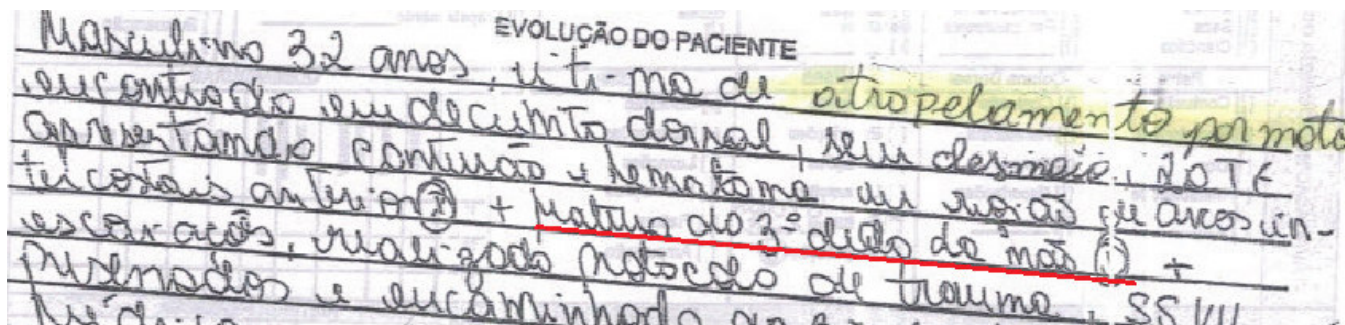 EVOLUÇÃO DO PACIENTE
Masculino 32 anos, vitima de atropelamento por moto
encontrado em decubito dorsal, sem desmaio, LOTE
apresentando contusão e hematoma em região de arcos in-
tercostais anterior (D) + fratura do 3º dedo da mão +
escoriações, realizado protocolo de trauma, SSVV
preservados e encaminhado ao